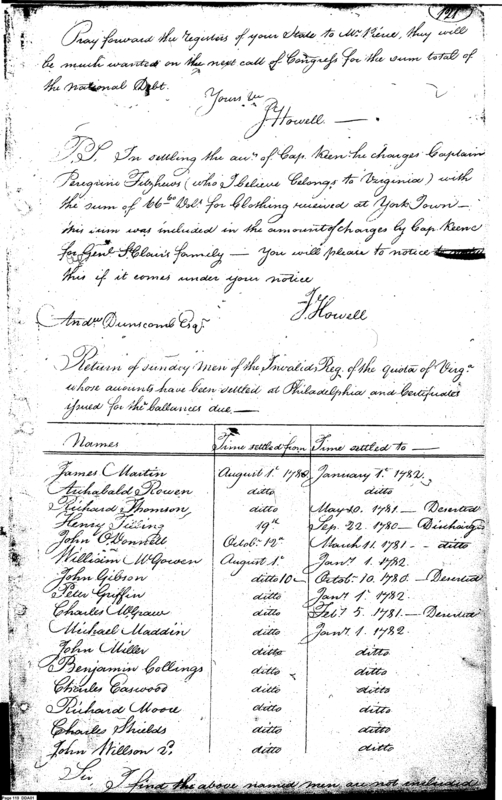 121
Pray forward the registers of your State to Mr. they will
be much wanted on the next call of Congress for the sum total of
the national Debt.
Yours
J Howell —
P.S. In settling the of Cap. Keen he charges Captain
Peregrine Fitzhews (who I believe belongs to Virginia) with
the sum of 66 for Clothing received at York Town —
this sum was included in the amount of charges by Cap. Keene
for Genl. St Clair's family — You will please to notice
this if it comes under your notice
J. Howell
Andw. Dunscomb Esqr.
Return of sundry men of the Invalid Reg. of the quota of Virga.
whose accounts have been settled at Philadelphia and Certificates
issued for the ballances due —
Names Time settled from Time settled to —
James Martin August 1st 1780 January 1st 1782.
Archabald Rowen ditto ditto
Richard Thomson ditto May 20. 1781 — Deserted
Henry 19th Sep. 22. 1780 — Discharge
John O'Donnell Octobr. 12th March 11. 1781 - ditto
William McGowen August 1st Jany. 1. 1782.
John Gibson ditto 10 — Octobr. 10. 1780. — Deserted
Peter Griffin ditto Jany. 1. 1782.
Charles McGraw ditto Feby. 5. 1781 — Deserted
Michael Maddin ditto Jany. 1. 1782.
John Miller ditto ditto
Benjamin Collings ditto ditto
Charles Easwood ditto ditto
Richard Moore ditto ditto
Charles Shields ditto ditto
John Willson ditto ditto
Sir I find the above named men are not included
Page 119 DDA01